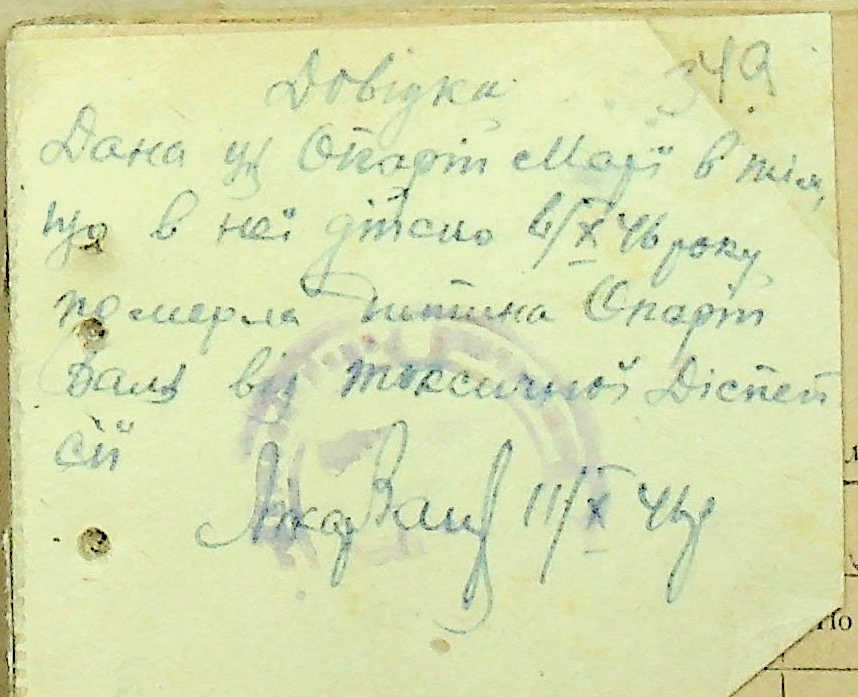 Довідка 349
Дана гр Опаріт Марії в тім,
що в неї дійсно 6/X 46 року
померла дитина Опаріт
Валя від токсичної Діспеп
сії
Лікар 11/X 46р